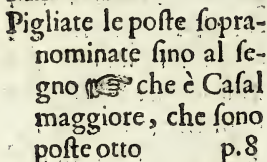 Pigliate le poſte ſopra-
nominate ſino al ſe-
gno ☞ che è Caſal
maggiore, che ſono
poſte otto p.8